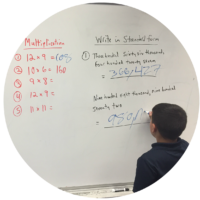 Multiplication
① 12 × 9 = 108
② 10 × 6 = 160
③ 9 × 8 =
④ 12 × 9 =
⑤ 11 × 11 =
Write in Standard form
① Three hundred Sixty six thousand,
four hundred twenty seven
= 366,427
Nine hundred eight thousand, two hundred
Seventy two
= 980